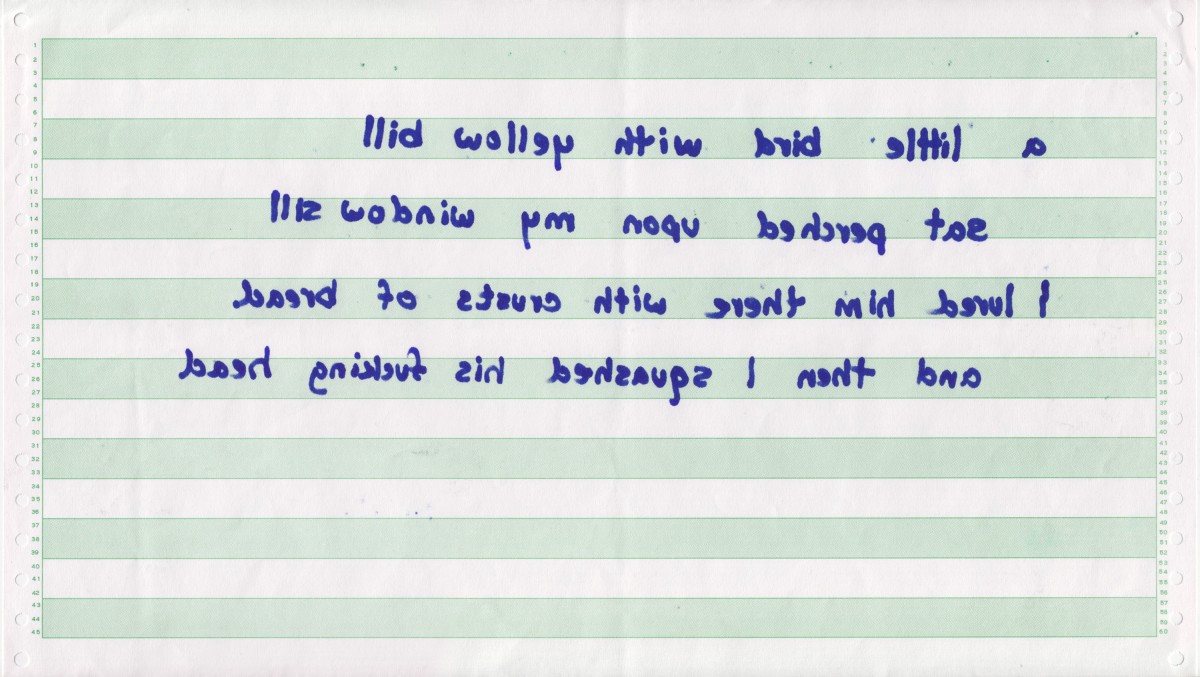 a little bird with yellow bill
sat perched upon my window sill
I lured him there with crusts of bread
and then I squashed his fucking head